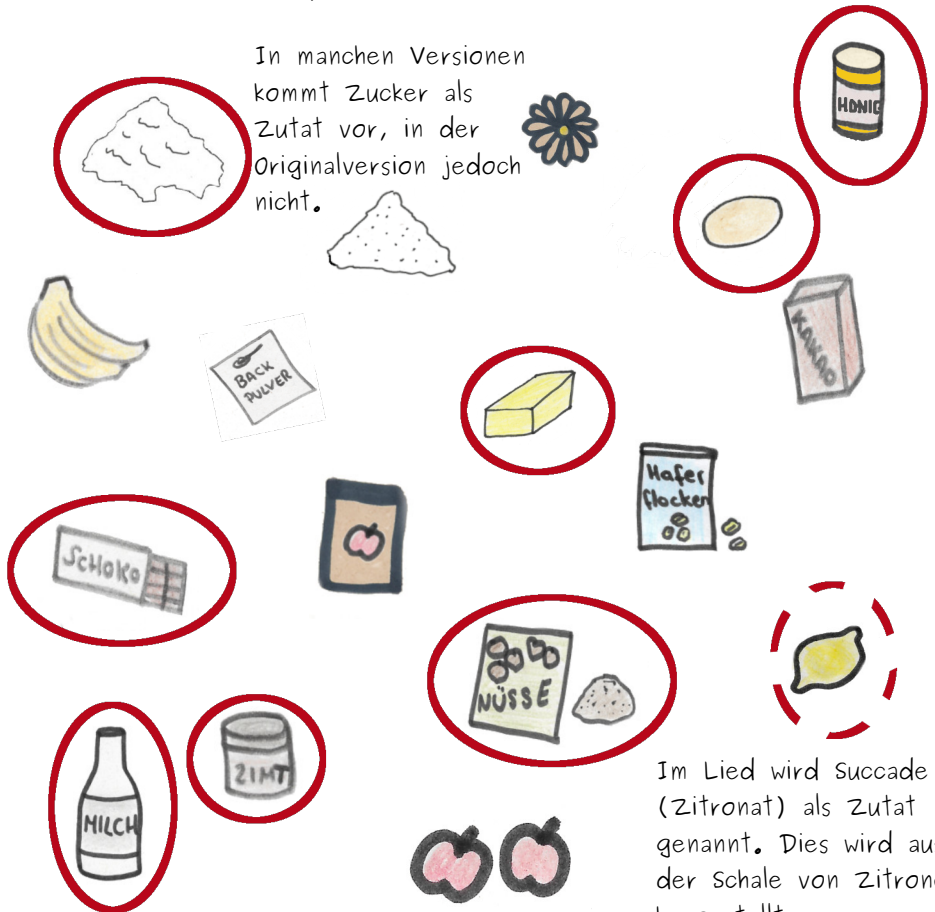 In manchen Versionen
kommt Zucker als
Zutat vor, in der
Originalversion jedoch
nicht.
HONIG
KAKAO
BACK
PULVER
Hafer
flocken
SCHOKO
NÜSSE
ZIMT
MILCH
Im Lied wird Succade
(Zitronat) als Zutat
genannt. Dies wird
der Schale von